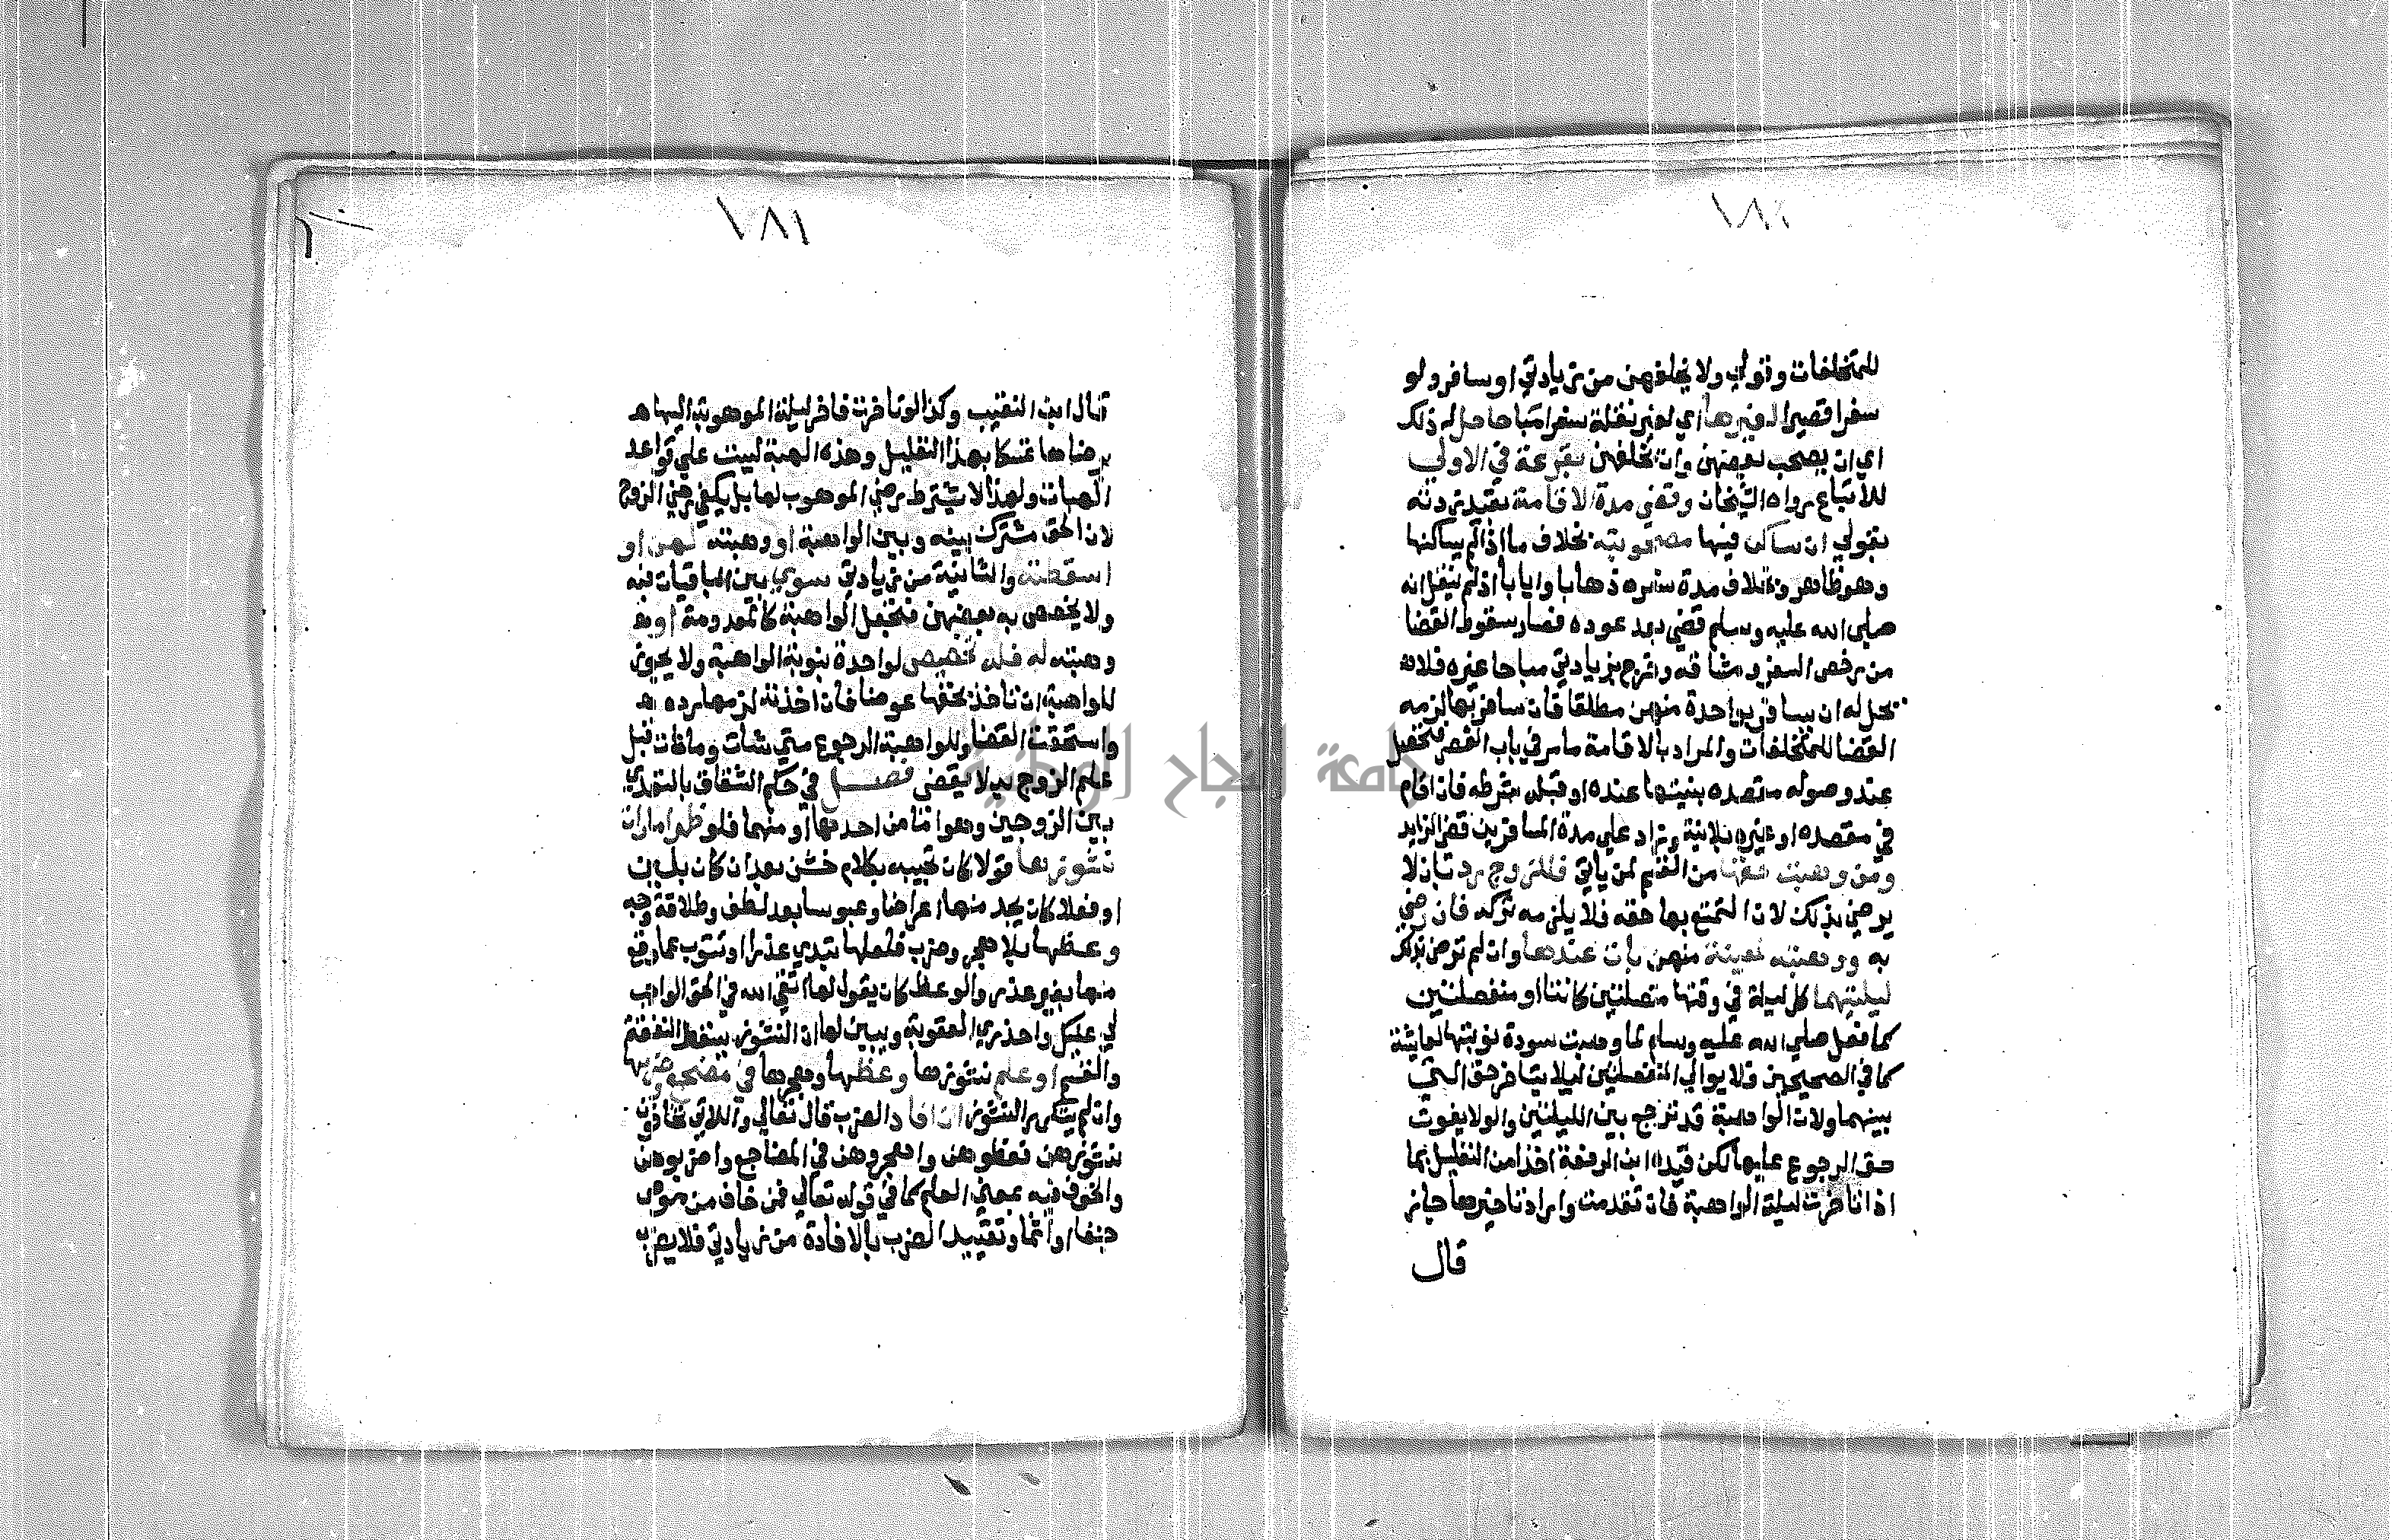 ١٨٠
للمتخلفات وقولي ولا يخلفهن من زيادتي او سافر ولو
سفرا قصيرا لغيرها اي لغير نقلة سفرا مباحا حل له ذلك
اي ان يصحب بعضهن وان يخلفهن بقرعة في الاولي
للاتباع رواه الشيخان وقضي مدة الاقامة بقيد زدته
بقولي ان ساكن فيها مصحوبته بخلاف ما اذا لم يساكنها
وهو ظاهر وخلاف مدة سفره ذهابا وايابا اذ لم ينقل انه
صلي الله عليه وسلم قضي بعد عوده فصار سقوط القضا
من رخص السفر ومشاقه وخرج بزيادتي مباحا غيره فلا
يحل له ان يسافر بواحدة منهن مطلقا فان سافر بها لزمه
القضا للمتخلفات والمراد بالاقامة ما مر في باب القصر فتحصل
عند وصوله مقصده بنيتها عنده او قبله بشرطه فان اقام
في مقصده او غيره بلا نية وزاد علي مدة المسافرين قضي الزايد
ومن وهبت حقها من القسم لمن ياتي فللزوج رد بان لا
يرضي بذلك لان التمتع بها حقه فلا يلزمه تركه فان رضي
به ووهبته لمعينة منهن بات عندها وان لم ترض بذلك
ليلتيهما كل ليلة في وقتها متصلتين كانتا او منفصلتين
كما فعل صلي الله عليه وسلم لما وهبت سودة نوبتها لعايشة
كما في الصحيحين ولا يوالي المنفصلتين ليلا يتاخر حق التي
بينهما ولان الواهبة قد ترجع بين الليلتين والولا يفوت
حق الرجوع عليها لكن قيده ابن الرفعة اخذا من التعليل بما
اذا تاخرت ليلة الواهبة فان تقدمت واراد تاخيرها جاز
قال
١٨١
قال ابن النقيب وكذا لو تاخرت فاخر ليلة الموهوبة اليها
برضاها تمسكا بهذا التعليل وهذه الهبة ليست علي قواعد
الهبات ولهذا لا يشترط رضي الموهوب لها بل يكفي رضي الزوج
لان الحق مشترك بينه وبين الواهبة او وهبته لهن او
اسقطته والثانية من زيادتي سوي بين الباقيات فيه
ولا يخصص به بعضهن فتجعل الواهبة كالمعدومة او
وهبته له فله تخصيص لواحدة بنوبة الواهبة ولا يجوز
للواهبة ان تاخذ بحقها عوضا فان اخذته لزمها رده
واستحقت القضا وللواهبة الرجوع متي شات وما فات قبل
علم الزوج به لا يقضي فصل في حكم الشقاق بالتعدي
بين الزوجين وهو اما من احدهما او منهما فلو ظهر امارات
نشوزها قولا كان تجيبه بكلام خشن بعد ان كان بلين
او فعلا كان يجد منها اعراضا وعبوسا بعد لطف وطلاقة وجه
وعظها بلا هجر وضرب فلعلها تبدي عذرا او تتوب عما وقع
منها بغير عذر والوعظ كان يقول لها اتقي الله في الحق الواجب
لي عليك واحذري العقوبة ويبين لها ان النشوز يسقط النفقة
والقسم او علم نشوزها وعظها وهجرها في مضجع وضربها
وان لم يتكرر النشوز ان افاد الضرب قال تعالي واللاتي تخافون
نشوزهن فعظوهن واهجروهن في المضاجع واضربوهن
والخوف فيه بمعني العلم كما في قوله تعالي فمن خاف من موص
جنفا او اثما وتقييد الضرب بالافادة من زيادتي فلا يضرب
جامعة النجاح الوطنية